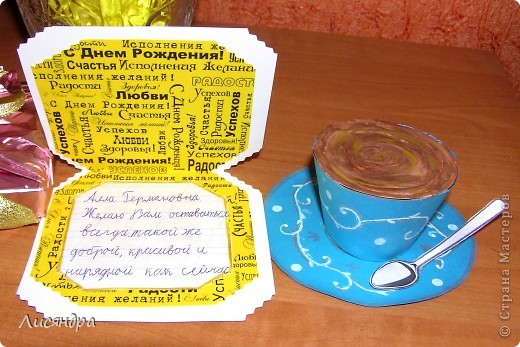 Радости Исполнения же
С Днем Рождения! Усп
Счастья Исполнения Желани
желаний! РАДОСТИ
Радости
Любви
С Днем Рождения! Счастья
Успехов
Любви
Здоровья!
Днем Рождения!
Успехов
Радости
Успехов
Счастья
С Днем Рождения!
Здоровья!
Успехов
Радости
Алла Германовна
Желаю Вам оставаться
всегда такой же
доброй, красивой и
нарядной как сейчас
Радости
Счастья
Радости
желаний!
Лисяндра
© Страна Мастеров